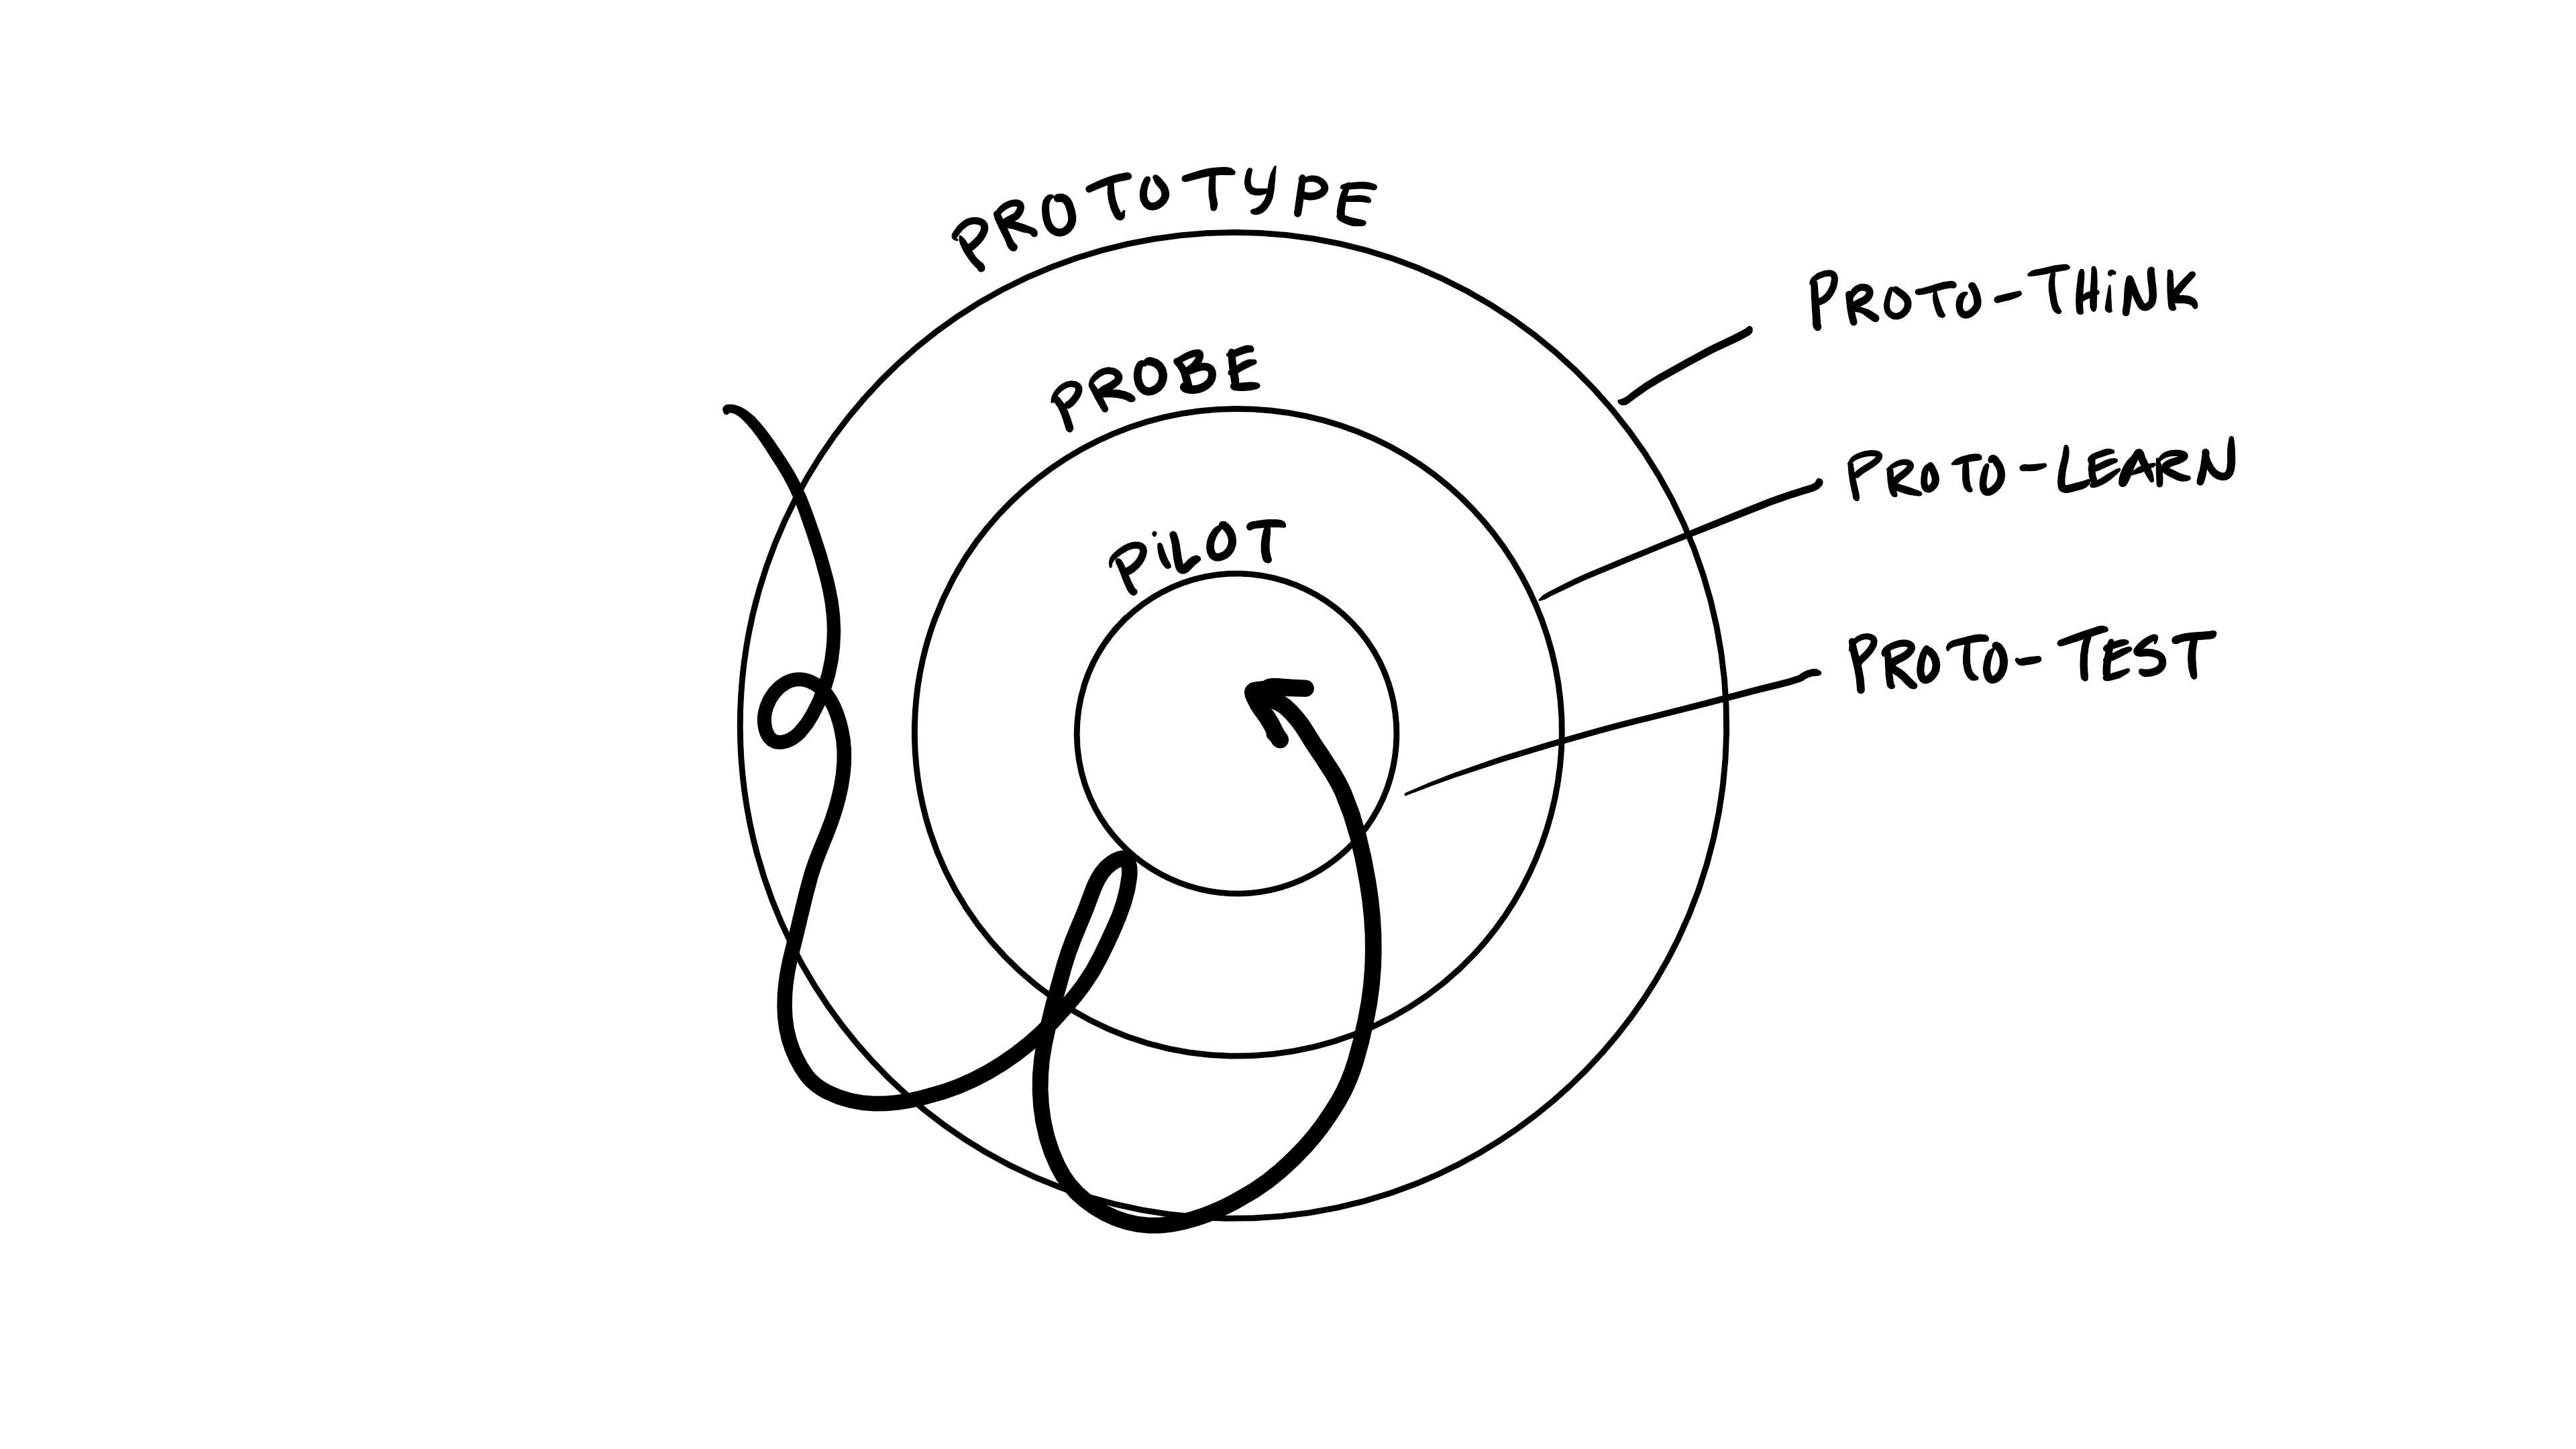 PROTOTYPE
PROBE
PiLOT
PROTO-THiNK
PROTO-LEARN
PROTO-TEST